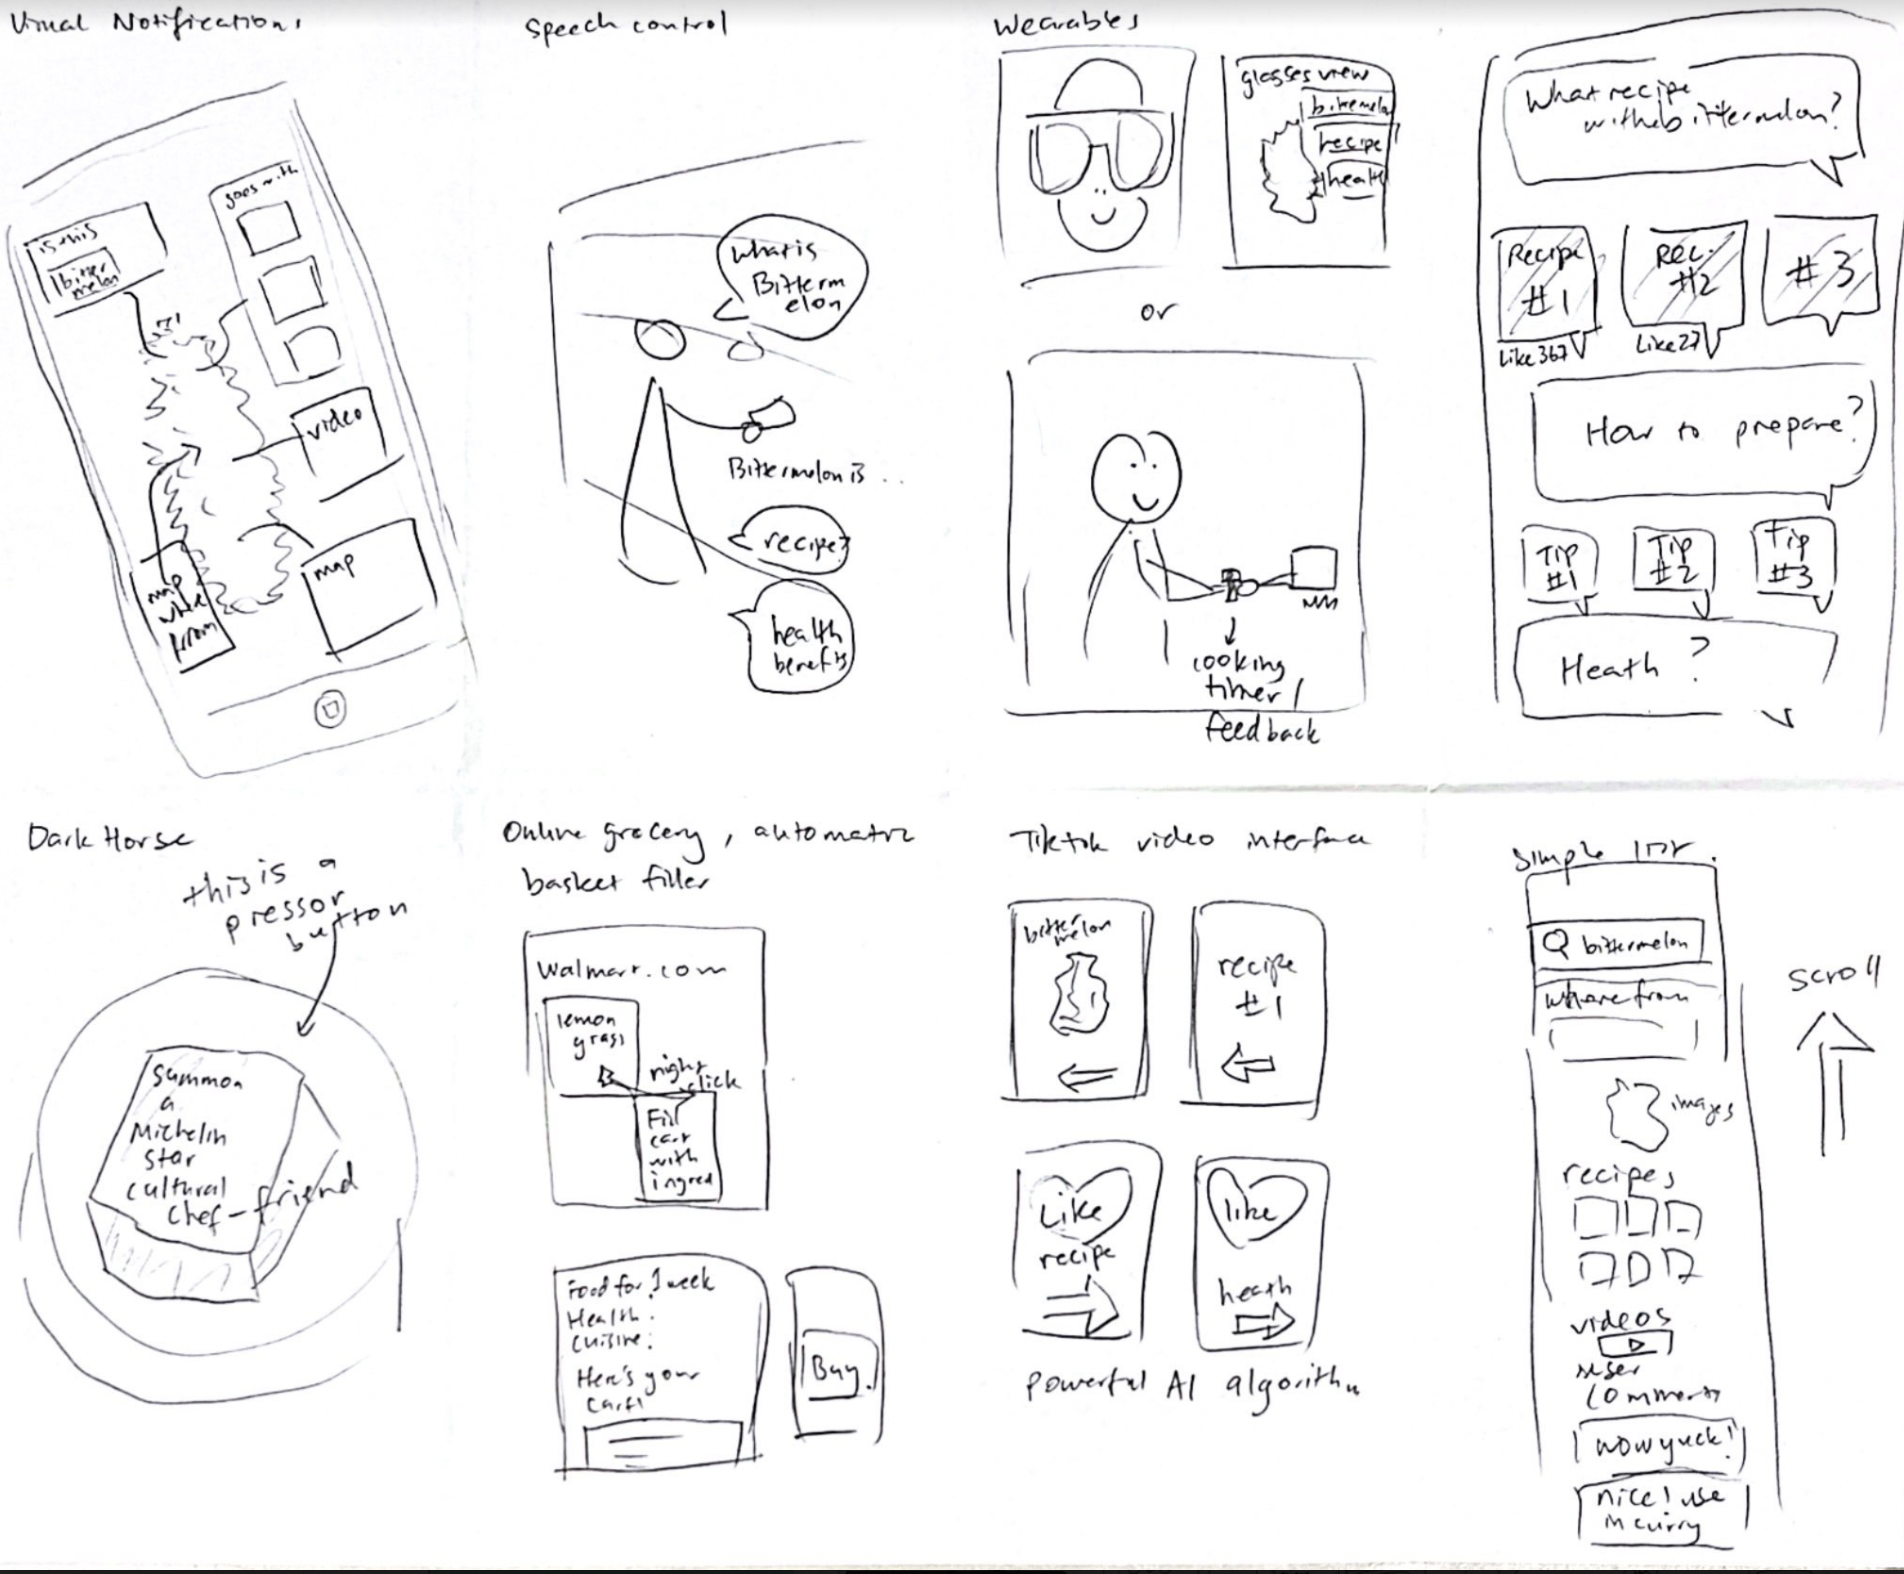 Visual Notifications
is this
bitter
melon
goes with
video
map
map
where
from
Speech control
what is
Bitterm
elon
Bittermelon is ..
recipe?
health
benefits
Wearables
glasses view
bittermelo
recipe
health
or
cooking
timer /
feedback
What recipe
with bittermelon?
Recipe
#1
Rec.
#2
#3
Like 367
Like 27
How to prepare?
Tip
#1
Tip
#2
Tip
#3
Heath ?
Dark Horse
this is a
pressor
button
Summon
a
Michelin
star
cultural
chef - friend
Online grocery, automatic
basket filler
Walmart.com
lemon
grass
right
click
Fill
cart
with
ingred
Food for 1 week
Health:
Cuisine:
Here's your
cart!
Buy
Tiktok video interface
bitter
melon
recipe
#1
Like
recipe
like
heath
powerful AI algorithm
Simple list.
bittermelon
where from
images
recipes
videos
user
comments
wow yuck!
nice! use
in curry
scroll